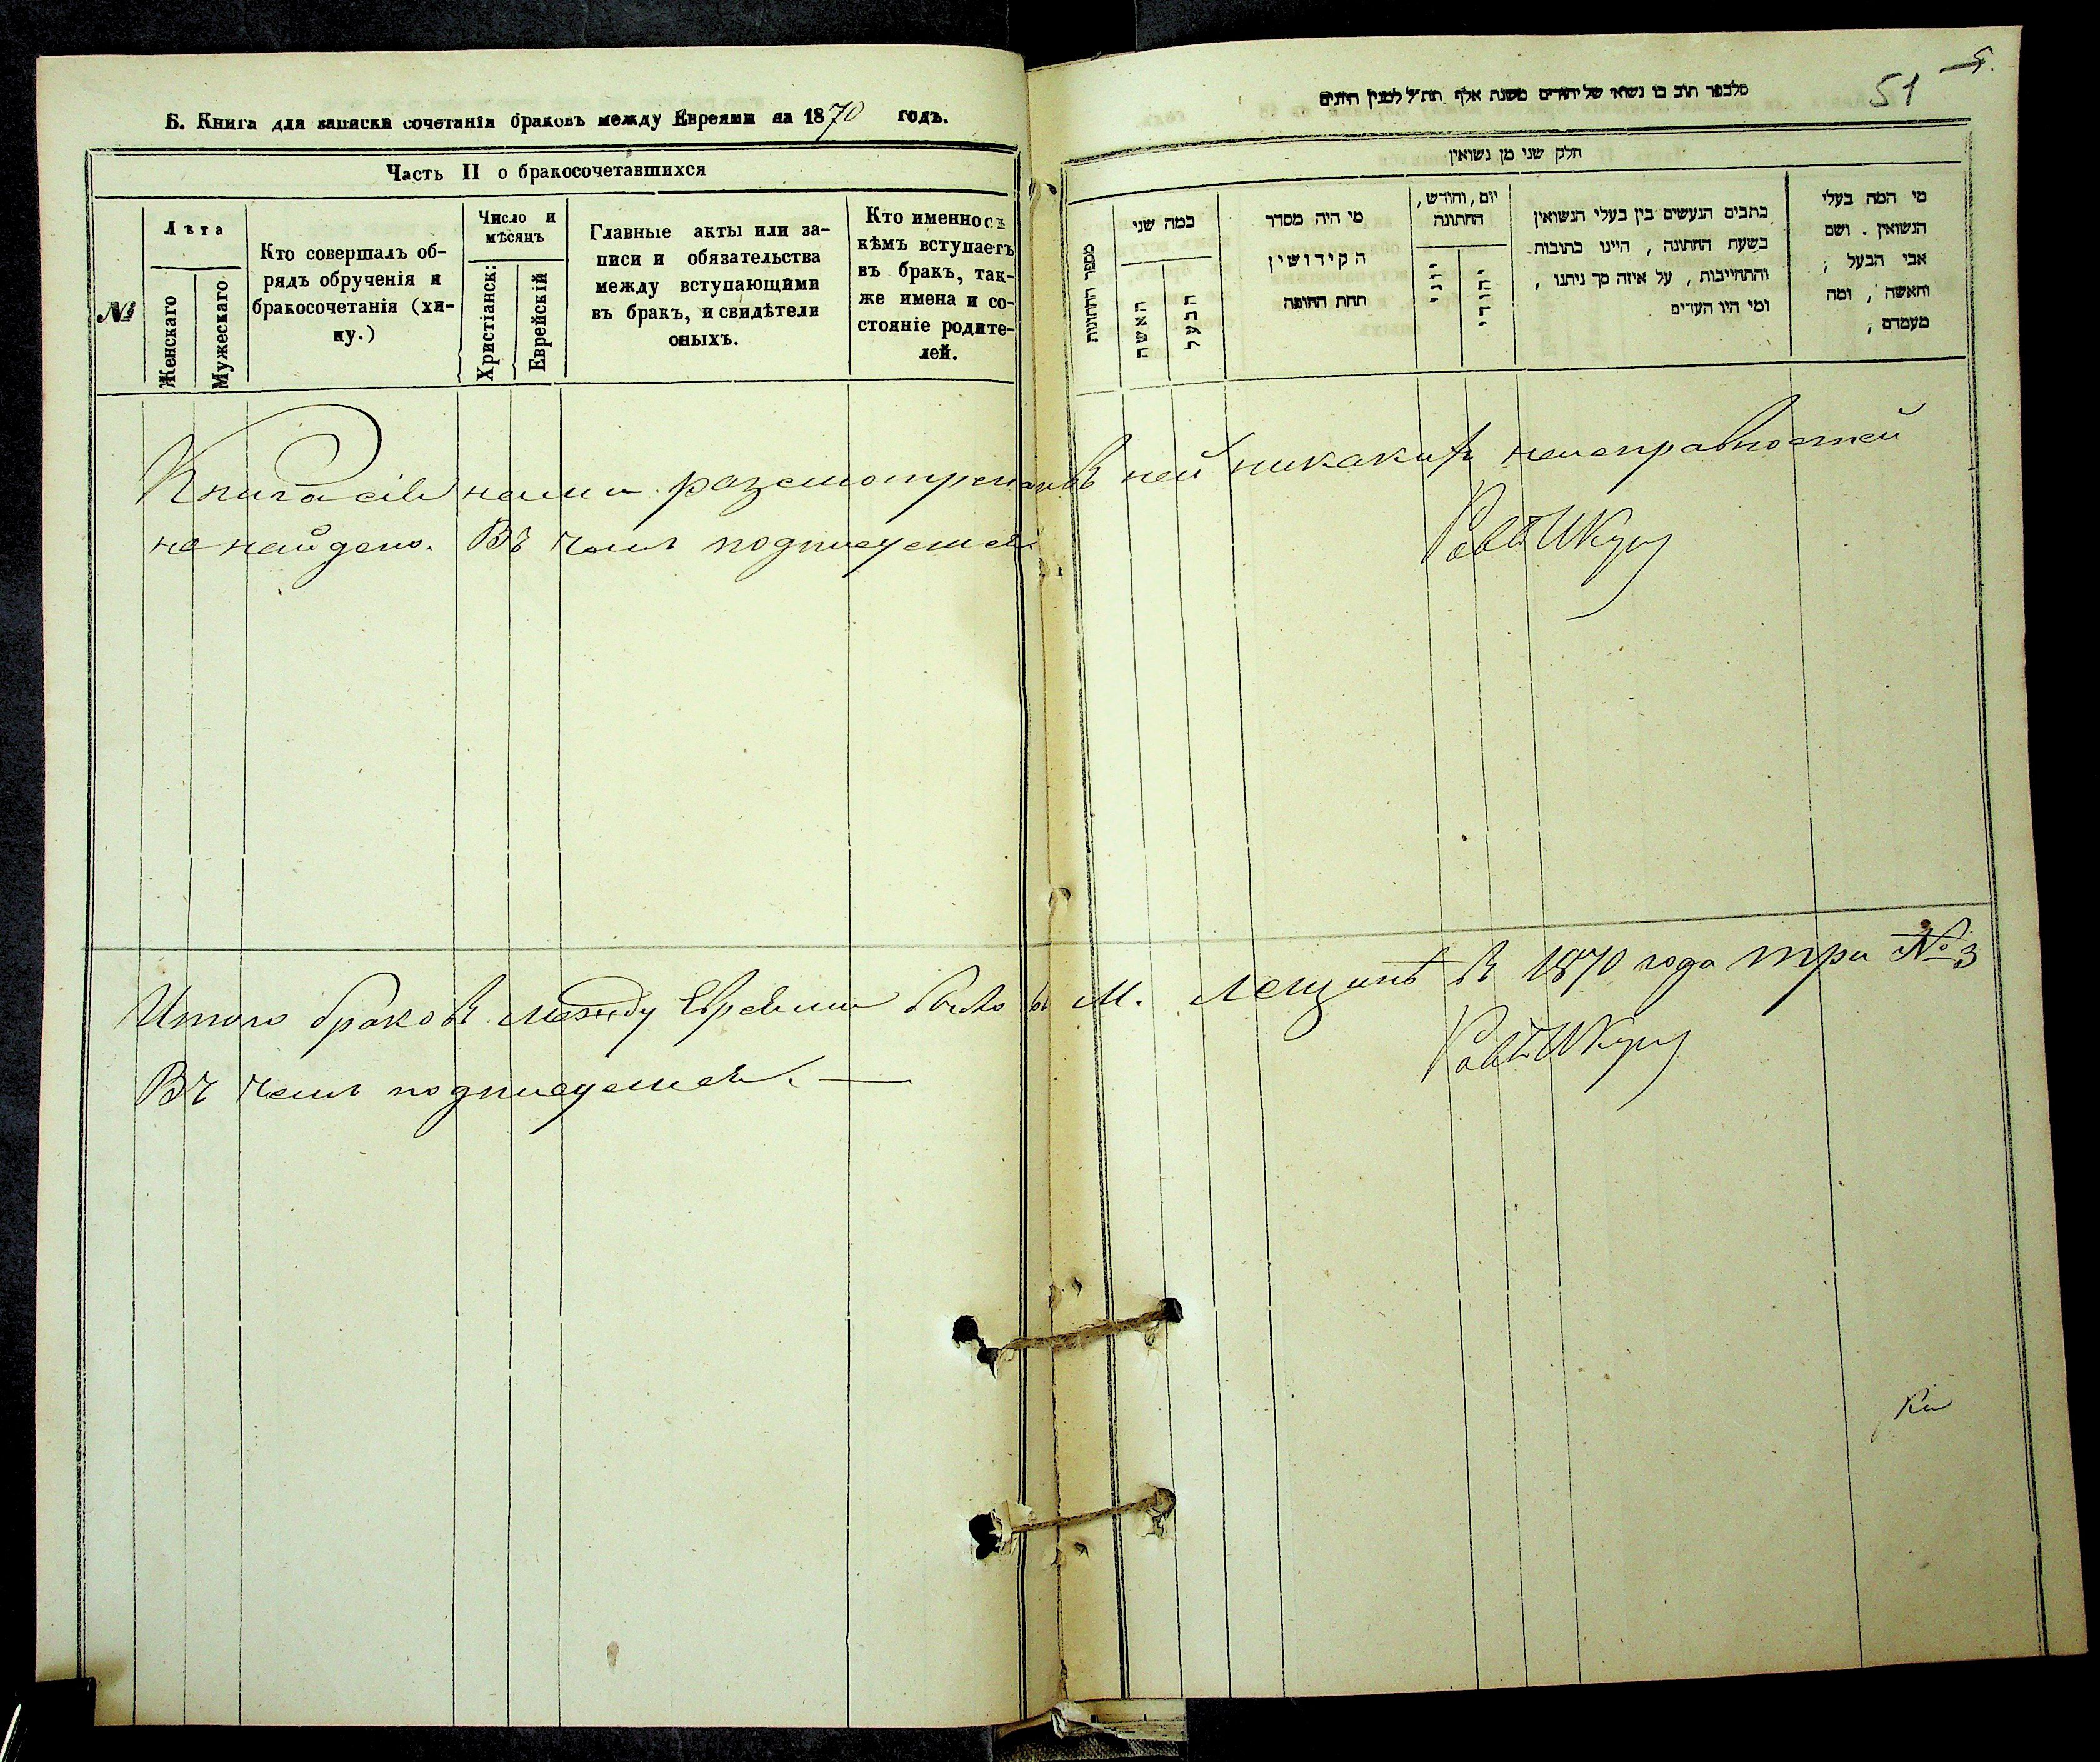 Б. Книга для записки сочетанія браковъ между Евреями на 1870 годъ.
Часть II о бракосочетавшихся
№
Лѣта
Женскаго
Мужескаго
Кто совершалъ об-
рядъ обрученія и
бракосочетанія (хи-
пу.)
Число и
мѣсяцъ
Христіанск:
Еврейскій
Главные акты или за-
писи и обязательства
между вступающими
въ бракъ, и свидѣтели
оныхъ.
Кто именно съ
кѣмъ вступаетъ
въ бракъ, так-
же имена и со-
стояніе родите-
лей.
51
חלק שני מן נשואין
מספר החתונות
כמה שני
האשה
הבעל
מי היה מסדר
הקידושין
תחת החופה
יום, וחודש,
החתונה
יוני
יהודי
כתבים הנעשים בין בעלי הנשואין
בשעת החתונה, היינו כתובות
והתחייבות, על איזה סך ניתנו,
ומי היו העדים
מי המה בעלי
הנשואין. ושם
אבי הבעל;
והאשה, ומה
מעמדם;
Книга сія нами разсмотрена въ ней никакихъ неисправностей
не найдено. Въ чемъ подписуемся.
Итого браковъ между Евреями было въ М. Лещинѣ въ 1870 года три № 3
Въ чемъ подписуемся. —